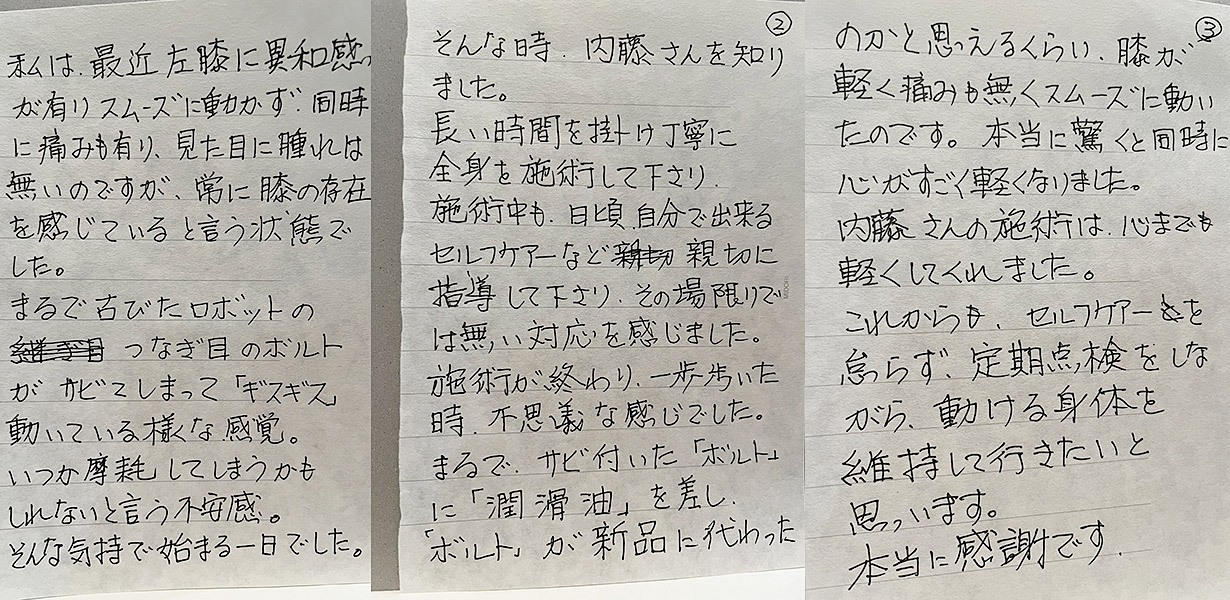 私は、最近左膝に異和感
が有りスムーズに動かず、同時
に痛みも有り、見た目に腫れは
無いのですが、常に膝の存在
を感じていると言う状態で
した。
まるで古びたロボットの
つなぎ目のボルト
が サビてしまって「ギスギス」
動いている様な感覚。
いつか摩耗してしまうかも
しれないと言う不安感。
そんな気持で始まる一日でした。
②
そんな時、内藤さんを知り
ました。
長い時間を掛け丁寧に
全身を施術して下さり、
施術中も、日頃、自分で出来る
セルフケアーなど 親切に
指導して下さり、その場限りで
は無い対応を感じました。
施術が終わり、一歩歩いた
時、不思議な感じでした。
まるで、サビ付いた「ボルト」
に「潤滑油」を差し、
「ボルト」が新品に代わった
③
のかと思えるくらい、膝が
軽く痛みも無くスムーズに動い
たのです。本当に驚くと同時に
心がすごく軽くなりました。
内藤さんの施術は、心までも
軽くしてくれました。
これからも、セルフケアーを
怠らず、定期点検をしな
がら、動ける身体を
維持して行きたいと
思っいます。
本当に感謝です.
MIDORI